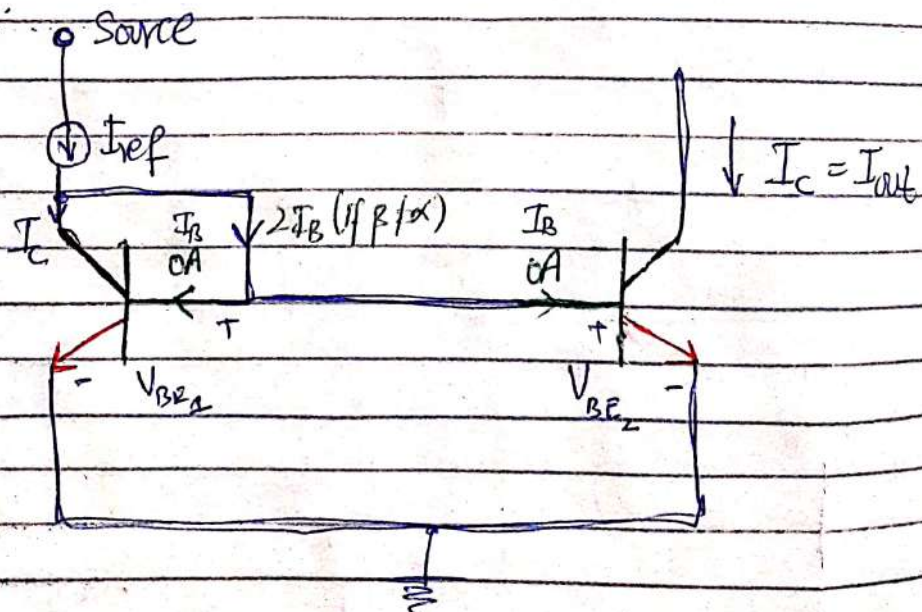 Source
Iref
I_C = I_out
I_C
I_B
0A
2I_B (if β≠∞)
I_B
0A
+
+
-
V_BE1
V_BE2
-